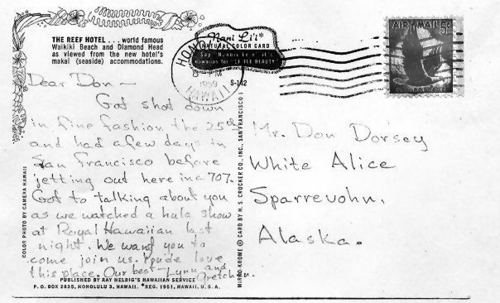 THE REEF HOTEL . . . world famous
Waikiki Beach and Diamond Head
as viewed from the new hotel's
makai (seaside) accommodations.
Nani Li'i
NATURAL COLOR CARD
Hawaiian for
HONOLULU
PM
1959
HAWAII
S-142
AIR MAIL
Dear Don—
Got shot down
in fine fashion the 25th
and had a few days in
San Francisco before
jetting out here in a 707.
Got to talking about you
as we watched a hula show
at Royal Hawaiian last
night. We want you to
come join us. You'de love
this place. Our best Lynn and
Gretchen.
Mr. Don Dorsey
White Alice
Sparrevohn,
Alaska.
COLOR PHOTO BY CAMERA HAWAII
MIRRO-KROME ® CARD BY H. S. CROCKER CO., INC., SAN FRANCISCO
PUBLISHED BY RAY HELBIG'S HAWAIIAN SERVICE
P. O. BOX 2835, HONOLULU 3, HAWAII. *REG. 1951, HAWAII, U. S. A.